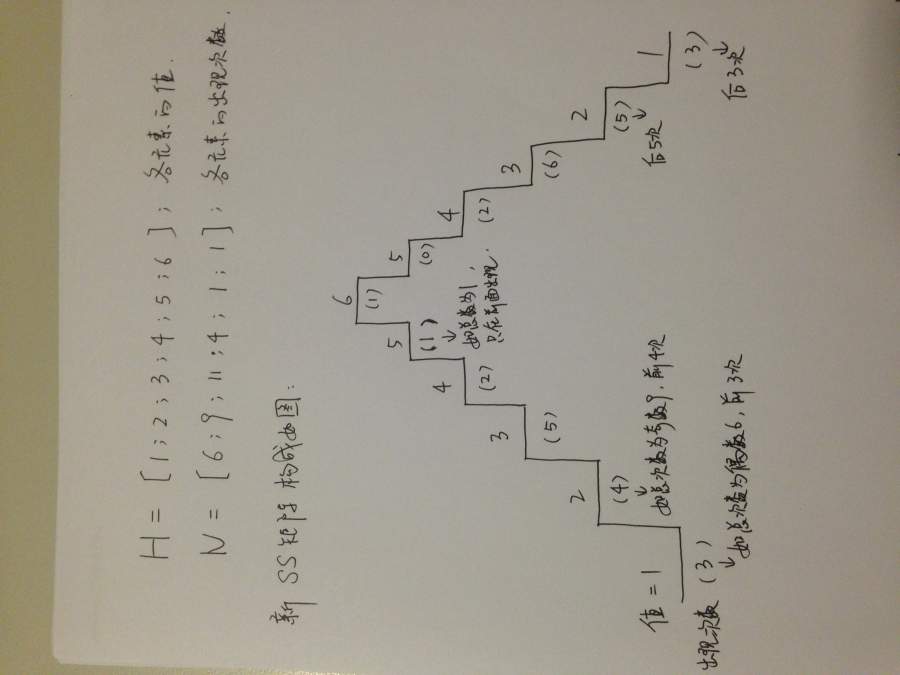 H = [1; 2; 3; 4; 5; 6]; 各元素的值.
N = [6; 9; 11; 4; 1; 1]; 各元素的出现次数.
新 SS 矩阵构成如图:
6
(1)
5
(1)
↓
如总数为1,
只在前面出现.
5
(0)
4
(2)
4
(2)
3
(5)
3
(6)
2
(4)
↓
如总次数为奇数9,前4次
2
(5)
↓
后5次
值 = 1
出现次数 (3)
↓
如总次数为偶数6,前3次
1
(3)
↓
后3次